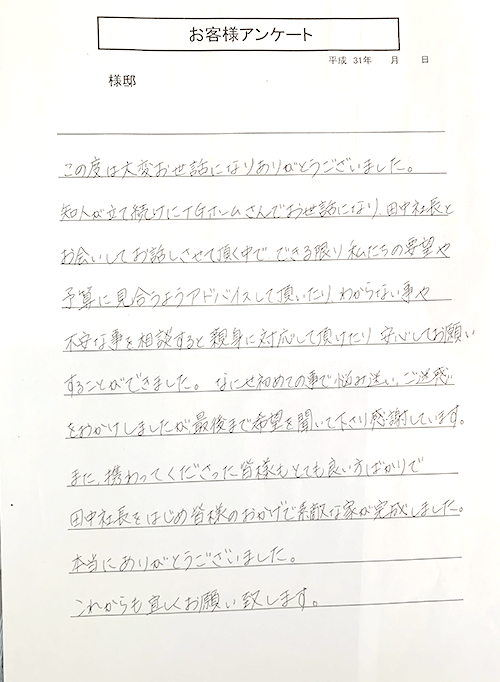 お客様アンケート
平成 31年　月　日
様邸
この度は大変お世話になりありがとうございました。
知人が立て続けにTGホームさんでお世話になり、田中社長と
お会いしてお話しさせて頂く中で できる限り私たちの要望や
予算に見合うようアドバイスして頂いたり わからない事や
不安な事を相談すると親身に対応して頂けたり 安心してお願い
することができました。なにせ初めての事で悩み迷い、ご迷惑
をおかけしましたが最後まで希望を聞いて下さり感謝しています。
また、携わってくださった皆様もとても良い方ばかりで
田中社長をはじめ皆様のおかげで素敵な家が完成しました。
本当にありがとうございました。
これからも宜しくお願い致します。